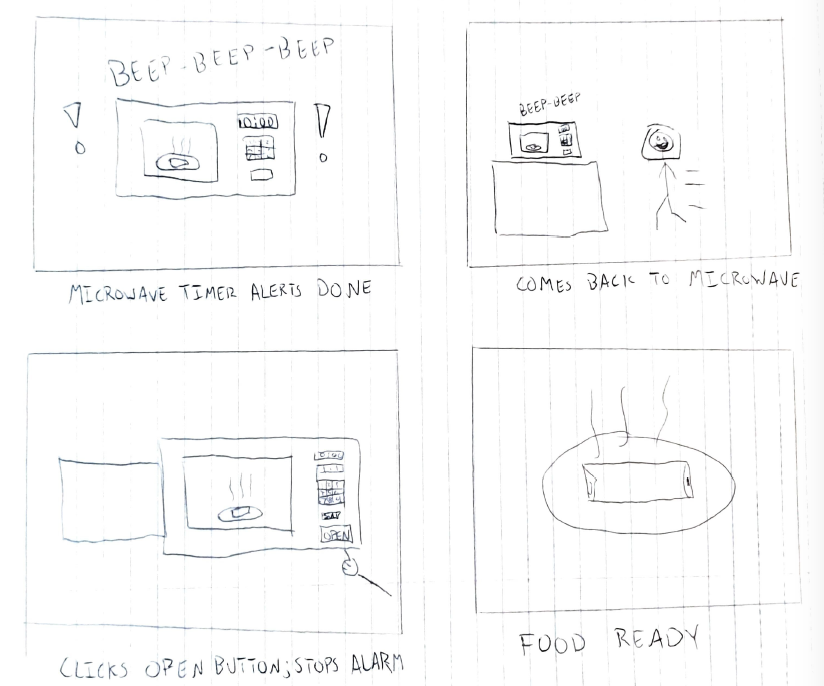 BEEP-BEEP-BEEP
! !
0:00
MICROWAVE TIMER ALERTS DONE
BEEP-BEEP
COMES BACK TO MICROWAVE
OPEN
CLICKS OPEN BUTTON; STOPS ALARM
FOOD READY